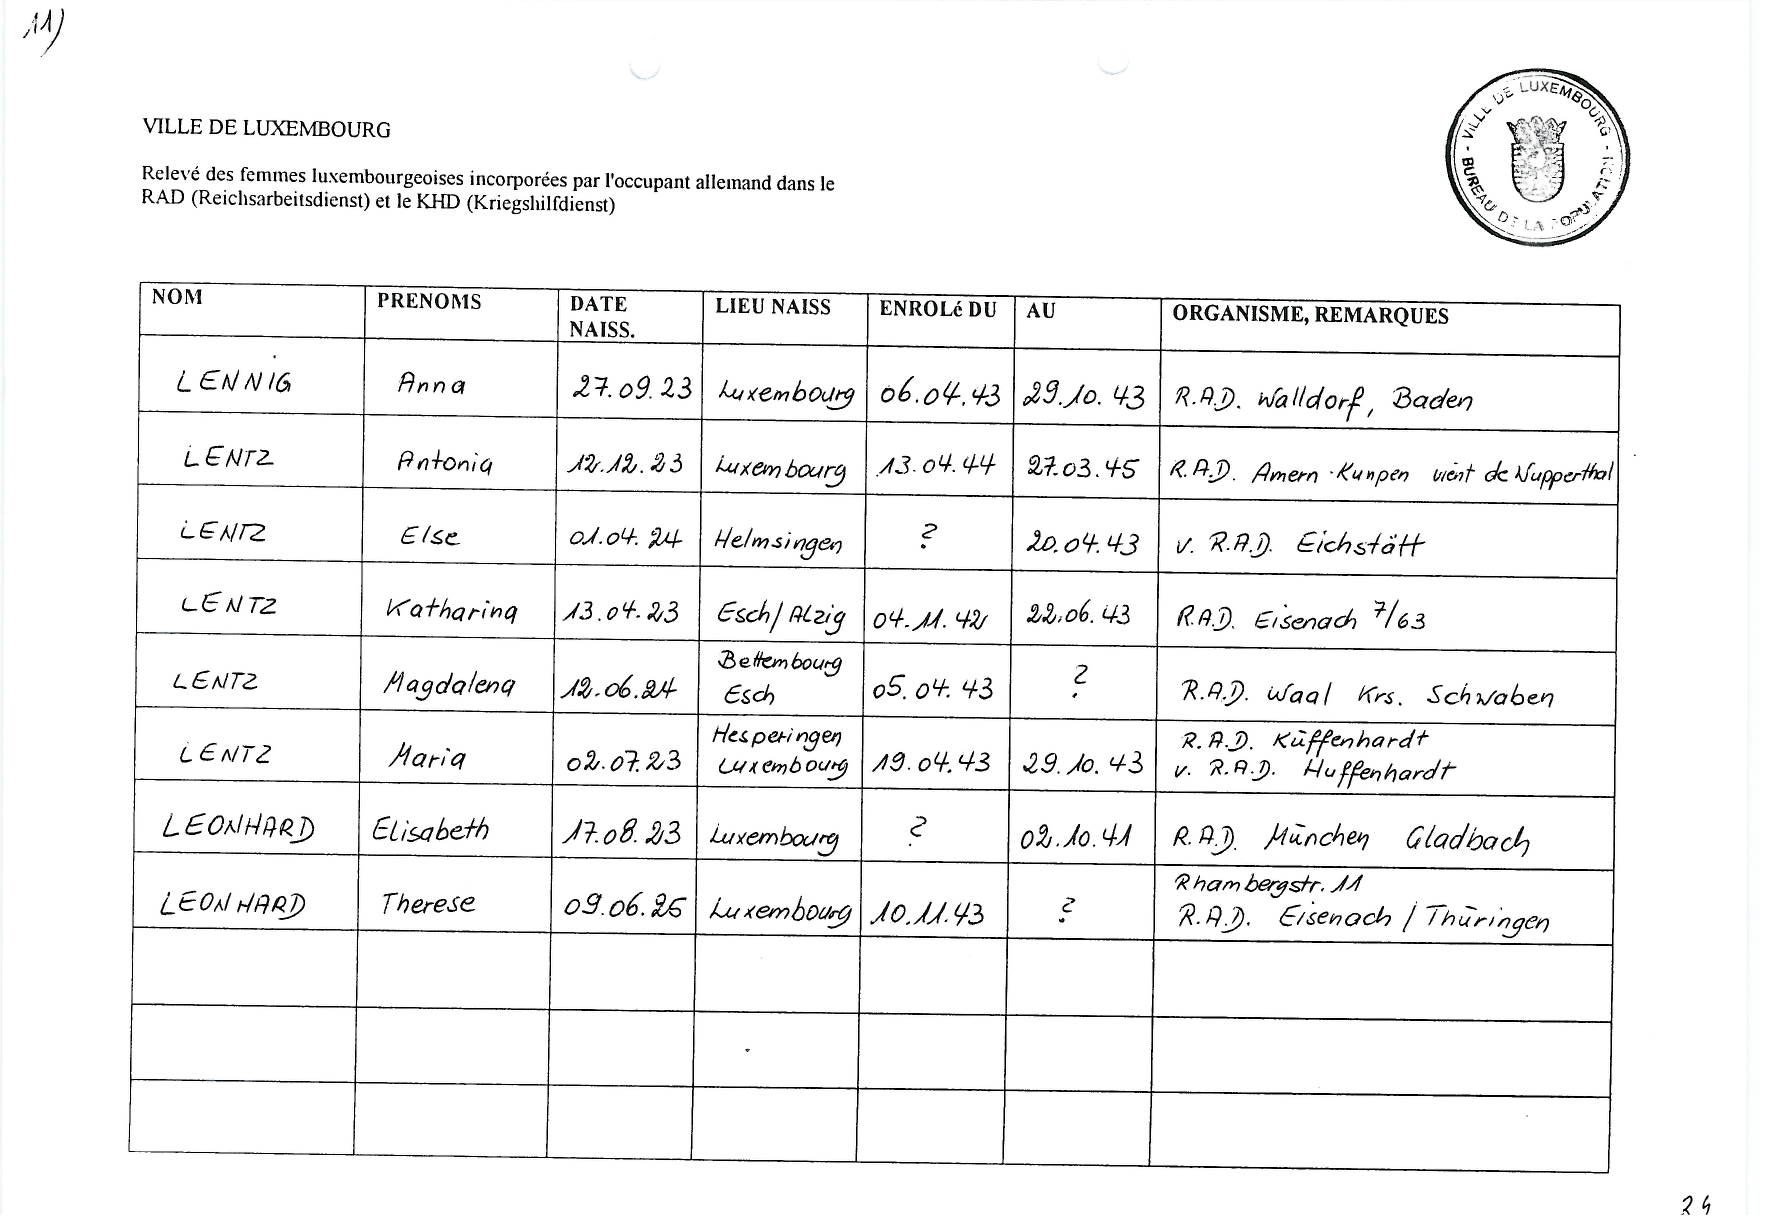 11)
VILLE DE LUXEMBOURG
Relevé des femmes luxembourgeoises incorporées par l'occupant allemand dans le
RAD (Reichsarbeitsdienst) et le KHD (Kriegshilfdienst)
VILLE DE LUXEMBOURG - BUREAU DE LA POPULATION -
NOM PRENOMS DATE NAISS. LIEU NAISS ENROLé DU AU ORGANISME, REMARQUES
LENNIG Anna 27.09.23 Luxembourg 06.04.43 29.10.43 R.A.D. Walldorf, Baden
LENTZ Antonia 12.12.23 Luxembourg 13.04.44 27.03.45 R.A.D. Amern-Kunpen vient de Wupperthal
LENTZ Else 01.04.24 Helmsingen ? 20.04.43 v. R.A.D. Eichstätt
LENTZ Katharina 13.04.23 Esch/Alzig 04.11.42 22.06.43 R.A.D. Eisenach 7/63
LENTZ Magdalena 12.06.24 Bettembourg Esch 05.04.43 ? R.A.D. Waal Krs. Schwaben
LENTZ Maria 02.07.23 Hesperingen Luxembourg 19.04.43 29.10.43 R.A.D. Küffenhardt
v. R.A.D. Huffenhardt
LEONHARD Elisabeth 17.08.23 Luxembourg ? 02.10.41 R.A.D. München Gladbach
LEONHARD Therese 09.06.25 Luxembourg 10.11.43 ? Rhambergstr. 11
R.A.D. Eisenach / Thüringen